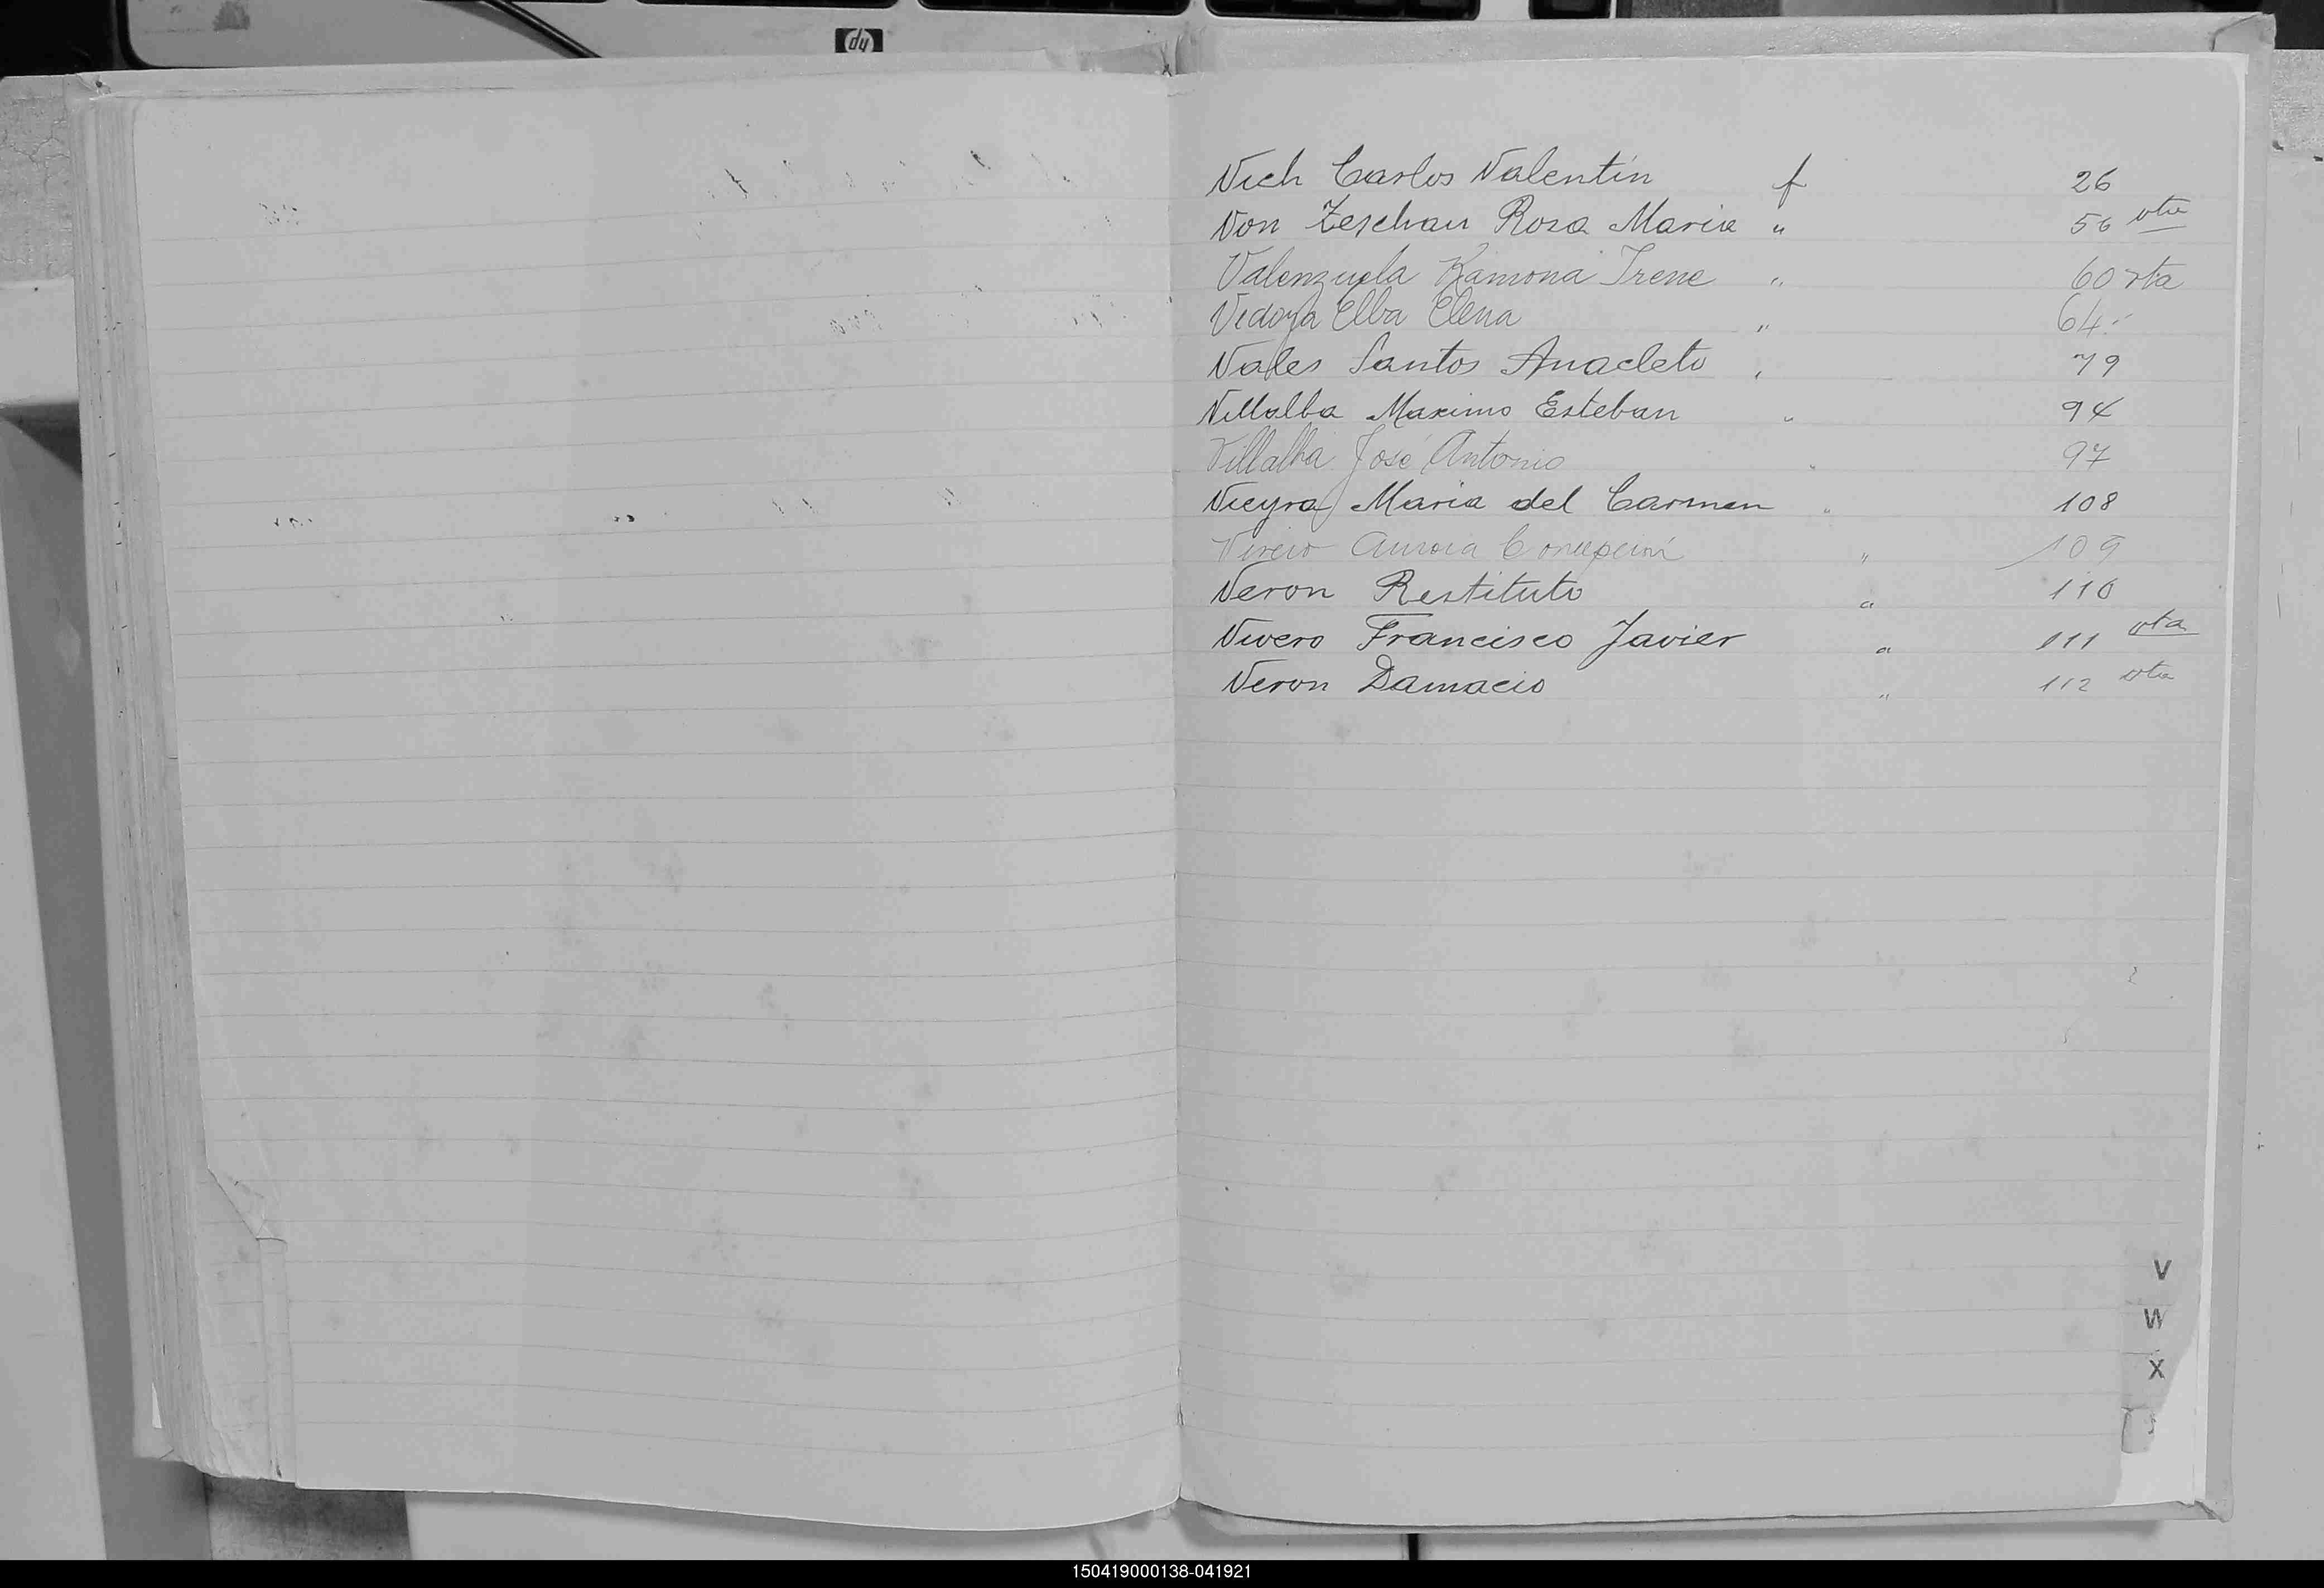 hp
Vich Carlos Valentín f 26
Von Zeschau Rosa Maria " 56 vta
Valenzuela Ramona Irene " 60 vta
Vedoya Elba Elena " 64.-
Vales Santos Anacleto " 79
Villalba Maximo Esteban " 94
Villalba José Antonio " 97
Vieyra Maria del Carmen " 108
Aurora Concepción " 109
Veron Restituto " 110
Vivero Francisco Javier " 111 vta
Veron Damacio " 112 vta
V
W
X
150419000138-041921